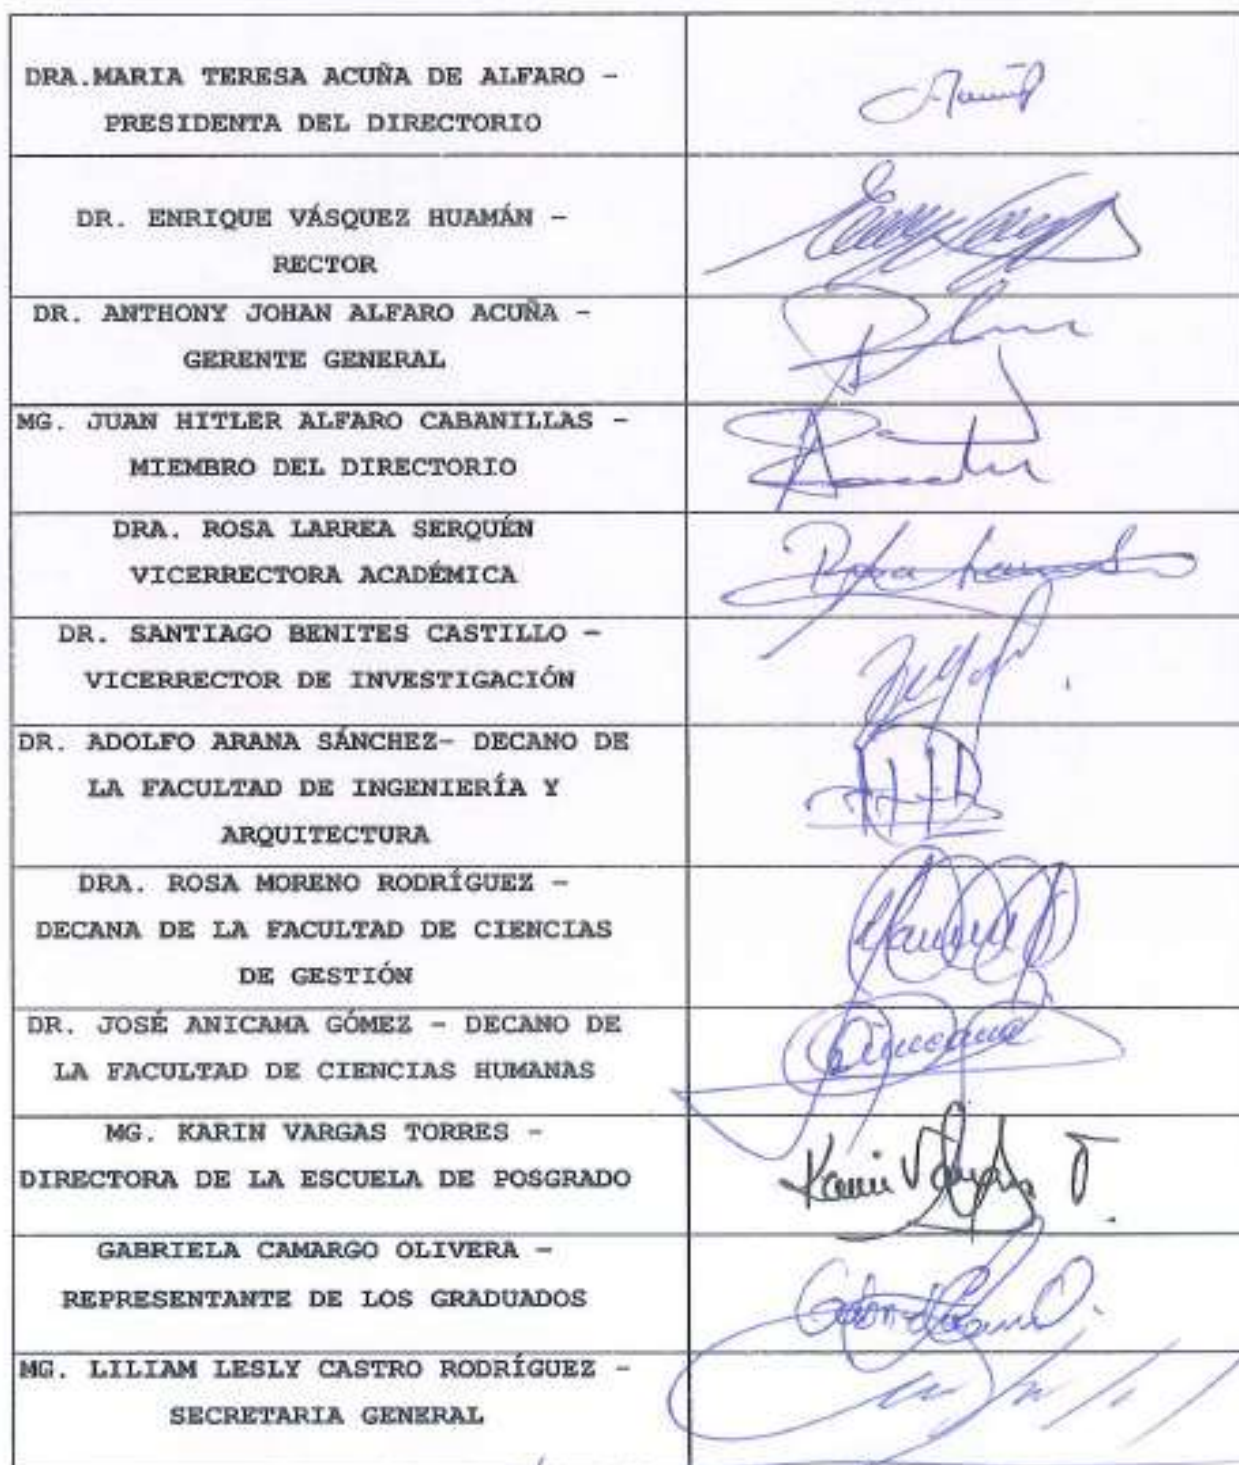 DRA.MARIA TERESA ACUÑA DE ALFARO –
PRESIDENTA DEL DIRECTORIO
DR. ENRIQUE VÁSQUEZ HUAMÁN –
RECTOR
DR. ANTHONY JOHAN ALFARO ACUÑA –
GERENTE GENERAL
MG. JUAN HITLER ALFARO CABANILLAS –
MIEMBRO DEL DIRECTORIO
DRA. ROSA LARREA SERQUÉN
VICERRECTORA ACADÉMICA
DR. SANTIAGO BENITES CASTILLO –
VICERRECTOR DE INVESTIGACIÓN
DR. ADOLFO ARANA SÁNCHEZ– DECANO DE
LA FACULTAD DE INGENIERÍA Y
ARQUITECTURA
DRA. ROSA MORENO RODRÍGUEZ –
DECANA DE LA FACULTAD DE CIENCIAS
DE GESTIÓN
DR. JOSÉ ANICAMA GÓMEZ – DECANO DE
LA FACULTAD DE CIENCIAS HUMANAS
MG. KARIN VARGAS TORRES –
DIRECTORA DE LA ESCUELA DE POSGRADO
GABRIELA CAMARGO OLIVERA –
REPRESENTANTE DE LOS GRADUADOS
MG. LILIAM LESLY CASTRO RODRÍGUEZ –
SECRETARIA GENERAL